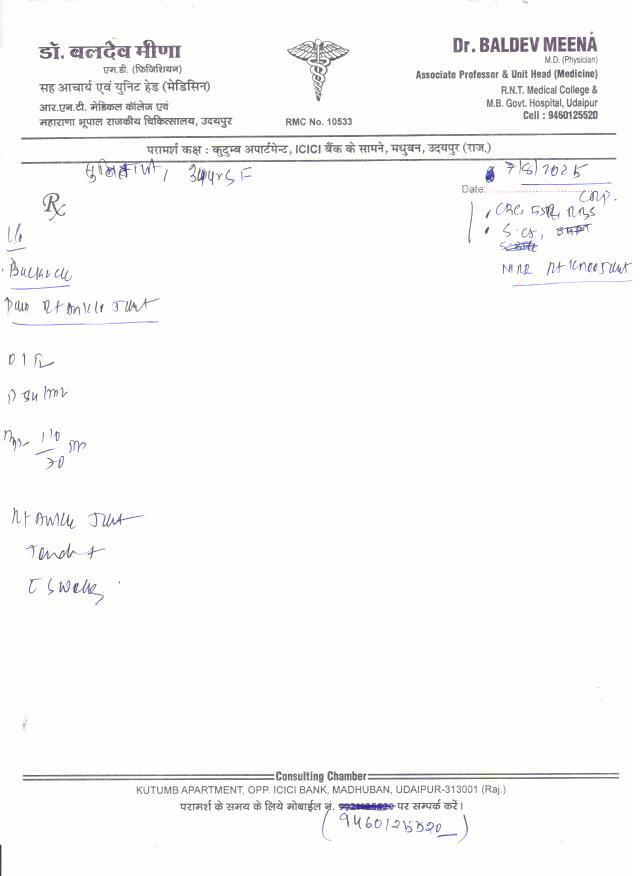 डॉ. बलदेव मीणा
एम.डी. (फिजिशियन)
सह आचार्य एवं युनिट हेड (मेडिसिन)
आर.एन.टी. मेडिकल कॉलेज एवं
महाराणा भूपाल राजकीय चिकित्सालय, उदयपुर
RMC No. 10533
Dr. BALDEV MEENA
M.D. (Physician)
Associate Professor & Unit Head (Medicine)
R.N.T. Medical College &
M.B. Govt. Hospital, Udaipur
Cell : 9460125520
परामर्श कक्ष : कुटुम्ब अपार्टमेन्ट, ICICI बैंक के सामने, मधुबन, उदयपुर (राज.)
34yrs F
7/8/2025
Rx
Date:
CBC, ESR, RBS
Rt Knee Joint
Pain Rt Ankle Joint
O/E
110
70
Rt Ankle Joint
Tend +
Consulting Chamber
KUTUMB APARTMENT, OPP. ICICI BANK, MADHUBAN, UDAIPUR-313001 (Raj.)
परामर्श के समय के लिये मोबाईल नं. पर सम्पर्क करें।
(9460125520)